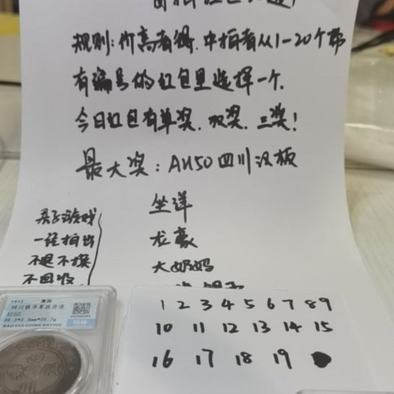 规则:价高者得,中拍者从1-20个带
有编号的红包里选择一个,
今日红包有单奖,双奖,三奖!
最大奖:AU50四川汉板
坐洋
龙豪
大奶妈
君子游戏
一经拍出
不退不换
不回收
1 2 3 4 5 6 7 8 9
10 11 12 13 14 15
16 17 18 19
1912
四川